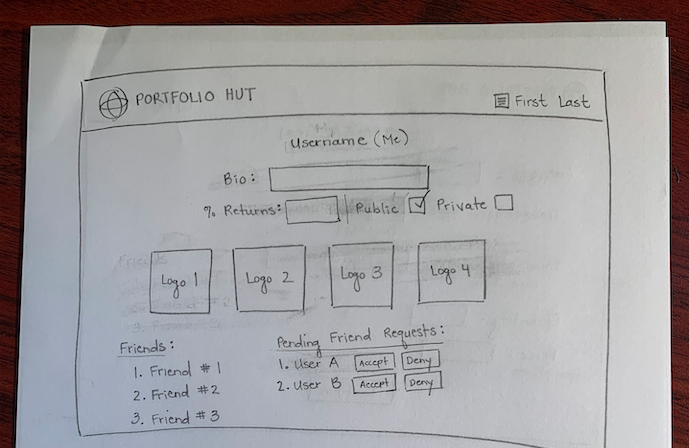 PORTFOLIO HUT
First Last
Username (Me)
Bio:
% Returns: Public Private
Logo 1 Logo 2 Logo 3 Logo 4
Friends:
1. Friend #1
2. Friend #2
3. Friend #3
Pending Friend Requests:
1. User A Accept Deny
2. User B Accept Deny